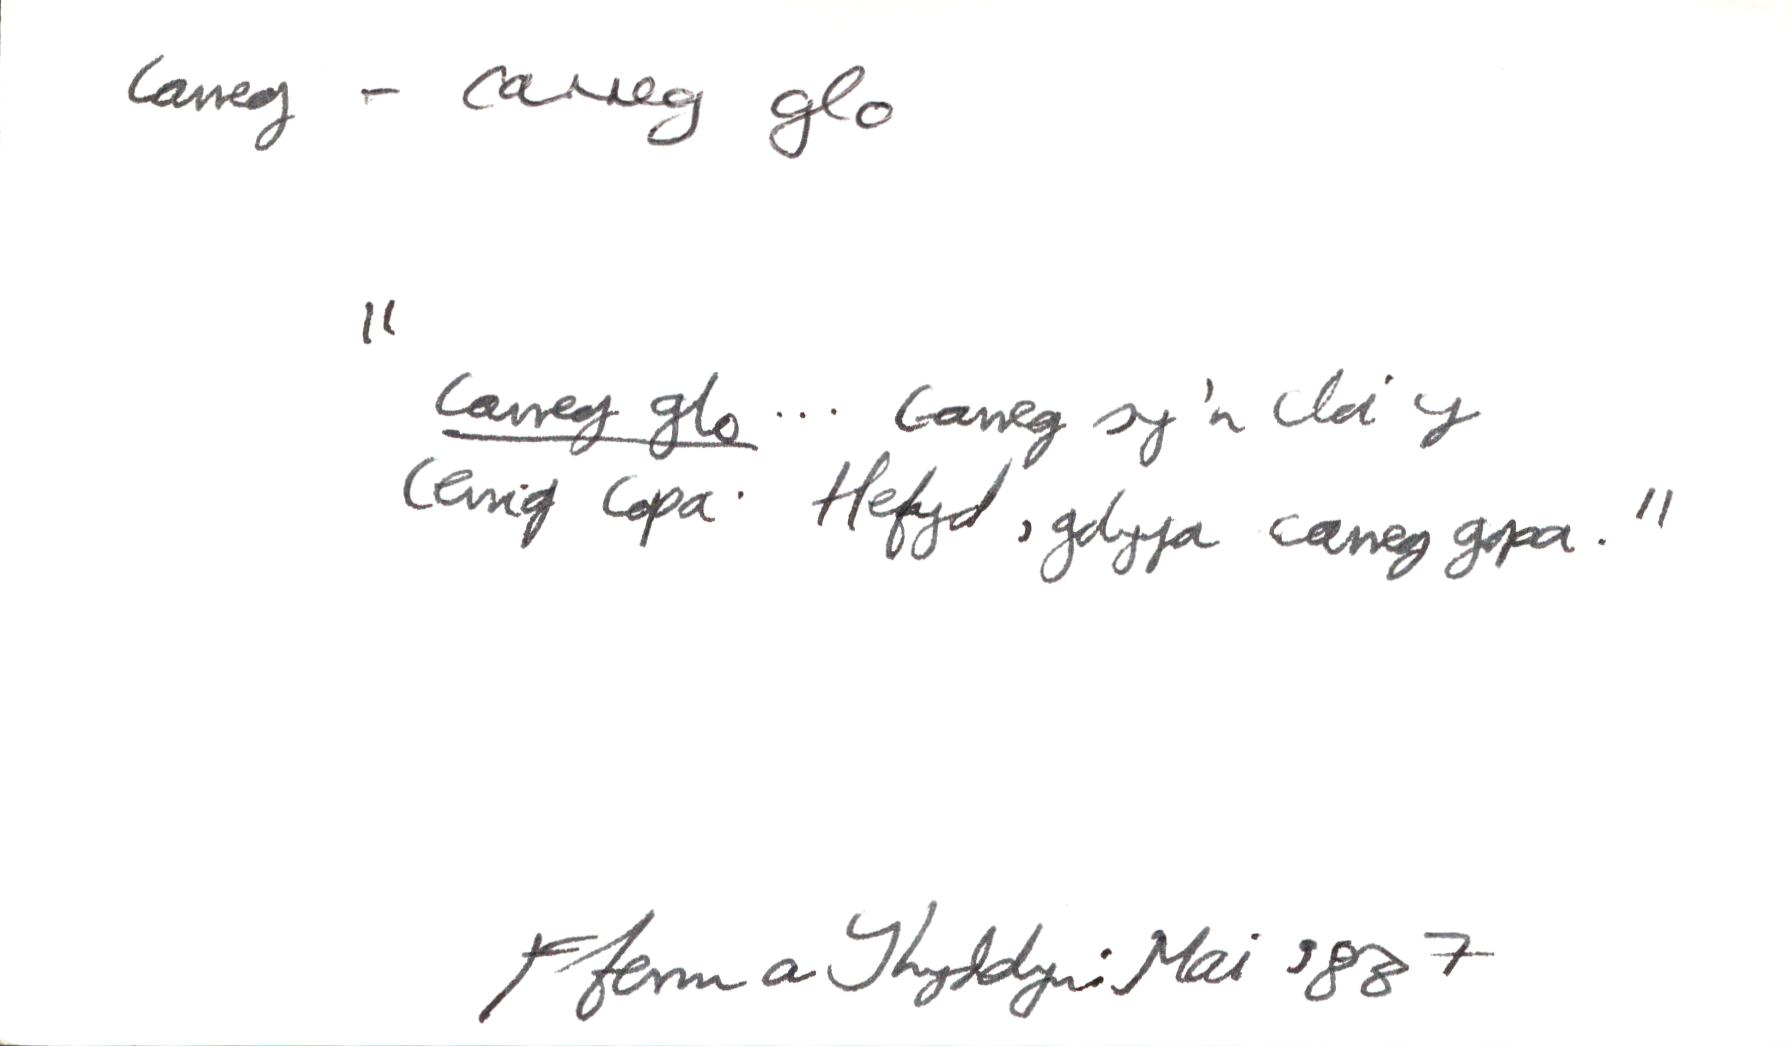 Carreg - carreg glo
"
Carreg glo ... Carreg sy'n cloi y
Cerrig Copa. Hefyd, gdyja carreg gopa."
Fferm a Thyddyn: Mai '88 7